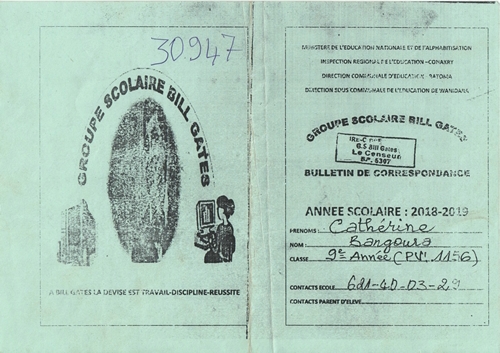 30.947
GROUPE SCOLAIRE BILL GATES
A BILL GATES LA DEVISE EST TRAVAIL-DISCIPLINE-REUSSITE
MINISTERE DE L'EDUCATION NATIONALE ET DE L'ALPHABETISATION
INSPECTION REGIONALE DE L'EDUCATION -CONAKRY
DIRECTION COMMUNALE D'EDUCATION - RATOMA
DIRECTION SOUS COMMUNALE DE L'EDUCATION DE WANDARA
GROUPE SCOLAIRE BILL GATES
G.S Bill Gates
Le Censeur
B.P. 6307
BULLETIN DE CORRESPONDANCE
ANNEE SCOLAIRE : 2018-2019
PRENOMS : Cathérine
NOM : Bangoura
CLASSE 9e Année (PV: 1156)
CONTACTS ECOLE 621-40-03-29
CONTACTS PARENT D'ELEVE